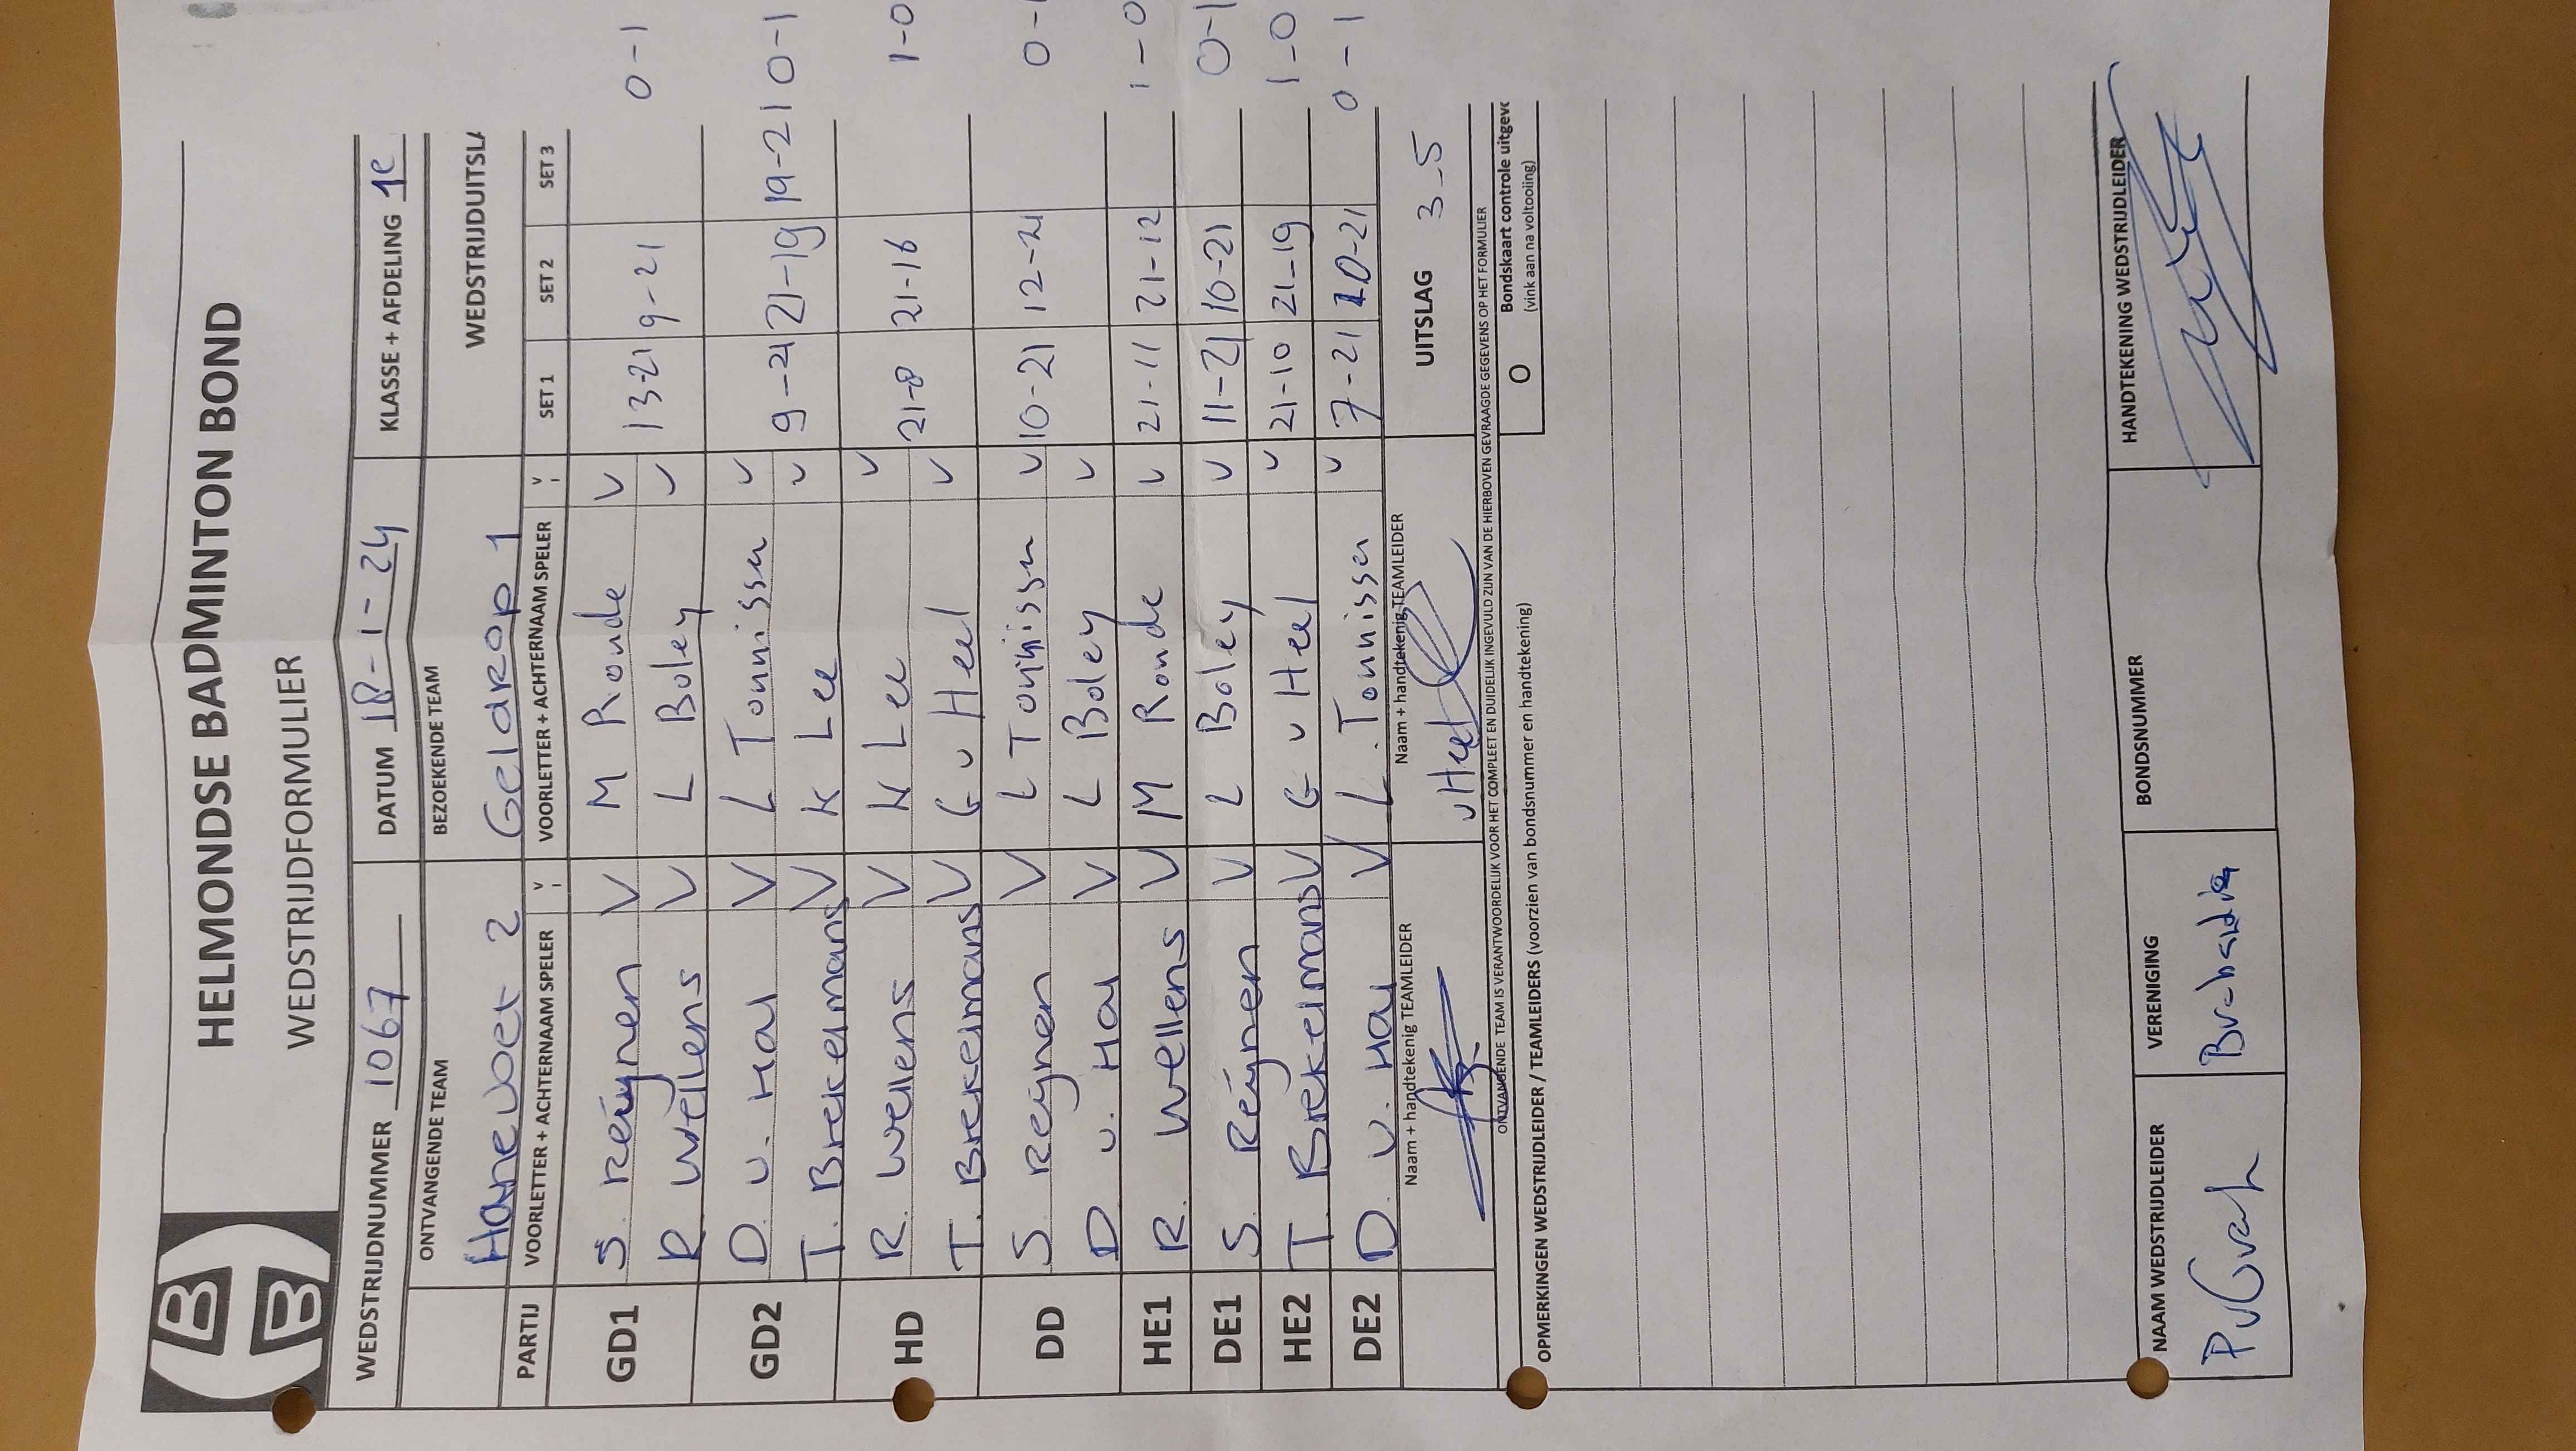 HELMONDSE BADMINTON BOND
WEDSTRIJDFORMULIER
WEDSTRIJDNUMMER 1067 DATUM 18-1-24 KLASSE + AFDELING 1e
ONTVANGENDE TEAM BEZOEKENDE TEAM WEDSTRIJDUITSLA
Hanevoet 2 Geldrop 1
PARTIJ VOORLETTER + ACHTERNAAM SPELER V VOORLETTER + ACHTERNAAM SPELER V SET 1 SET 2 SET 3
GD1 S. Reijnen V M Ronde V 13-21 9-21 0-1
R Wellens V L Boley V
GD2 D. v. Hal V L Tonnissen V 9-21 21-19 19-21 0-1
T. Brekelmans V K Lee V
HD R. Wellens V K Lee V 21-8 21-16 1-0
T. Brekelmans V G v Heel V
DD S Reijnen V L Tonnissen V 10-21 12-21 0-1
D v. Hal V L Boley V
HE1 R. Wellens V M Ronde V 21-11 21-12 1-0
DE1 S. Reijnen V L Boley V 11-21 10-21 0-1
HE2 T Brekelmans V G v Heel V 21-10 21-19 1-0
DE2 D. v. Hal V L. Tonnissen V 7-21 10-21 0-1
Naam + handtekenig TEAMLEIDER Naam + handtekenig TEAMLEIDER UITSLAG 3-5
vHeel
ONTVANGENDE TEAM IS VERANTWOORDELIJK VOOR HET COMPLEET EN DUIDELIJK INGEVULD ZIJN VAN DE HIERBOVEN GEVRAAGDE GEGEVENS OP HET FORMULIER
O Bondskaart controle uitgevo
(vink aan na voltooiing)
OPMERKINGEN WEDSTRIJDLEIDER / TEAMLEIDERS (voorzien van bondsnummer en handtekening)
NAAM WEDSTRIJDLEIDER VERENIGING BONDSNUMMER HANDTEKENING WEDSTRIJDLEIDER